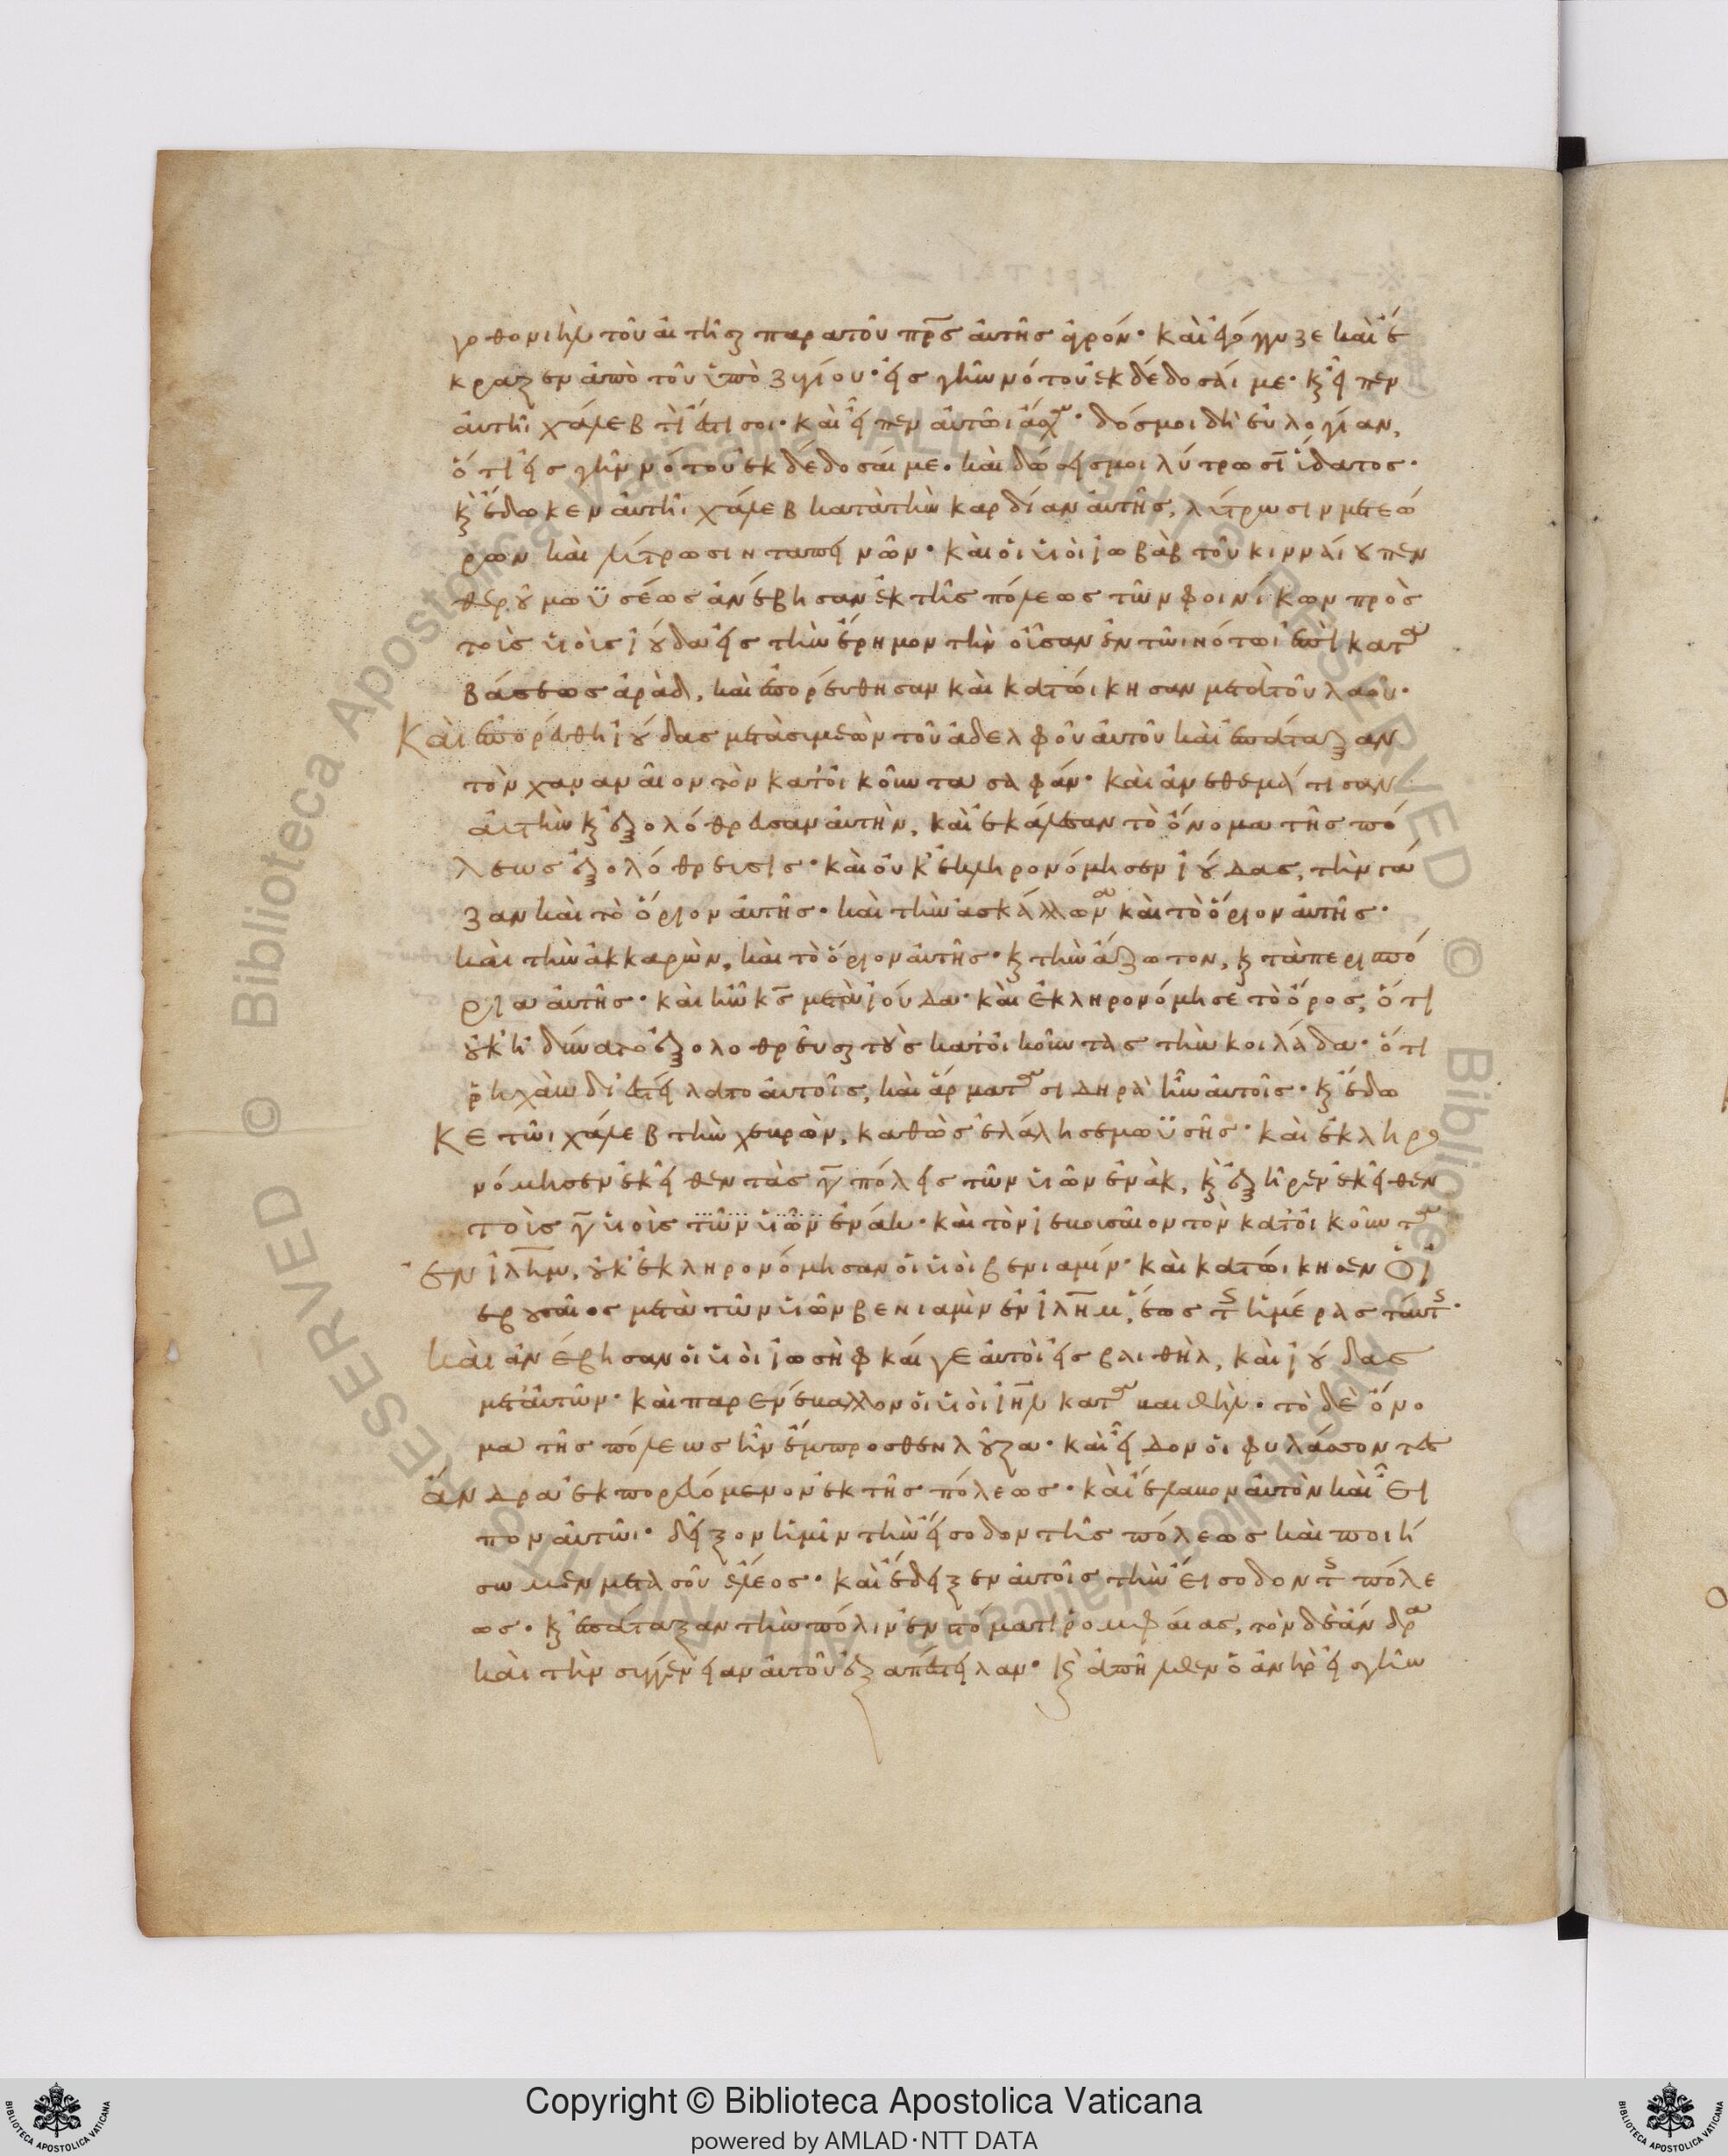 γοθονιὴλ τοῦ αἰτῆσαι παρὰ τοῦ πρς αὐτῆς ἀγρόν· καὶ ἐγόγγυζε καὶ ἔ
κραξεν ἀπὸ τοῦ ὑποζυγίου· εἰς γῆν νότου ἐκδέδοσαί με· κ εἶπεν
αὐτῆι χάλεβ τί ἐστι σοι· καὶ εἶπεν αὐτῶι ἀσχα· δός μοι δὴ εὐλογίαν,
ὅτι εἰς γῆν νότου ἐκδέδοσαί με· καὶ δώσεις μοι λύτρωσι ὕδατος·
κ ἔδωκεν αὐτῆι χάλεβ κατὰ τὴν καρδίαν αὐτῆς, λύτρωσιν μετεώ
ρων καὶ λύτρωσιν ταπεινῶν· καὶ οἱ υἱοὶ ἰωβὰβ τοῦ κιναίου πεν
θεροῦ μωϋσέως ἀνέβησαν ἐκ τῆς πόλεως τῶν φοινίκων πρὸς
τοὺς υἱοὺς ἰούδα εἰς τὴν ἔρημον τὴν οὖσαν ἐν τῶι νότωι ἐπὶ κατα
βάσεως ἀρὰδ, καὶ ἐπορεύθησαν καὶ κατώικησαν μετὰ τοῦ λαοῦ·
Καὶ ἐπορεύθη ἰούδας μετὰ σιμεὼν τοῦ ἀδελφοῦ αὐτοῦ καὶ ἐπάταξαν
τὸν χαναναῖον τὸν κατοικοῦντα σαφάν· καὶ ἀνεθεμάτισαν
αὐτὴν κ ἐξολόθρευσαν αὐτὴν, καὶ ἐκάλεσαν τὸ ὄνομα τῆς πό
λεως ἐξολόθρευσις· καὶ οὐκ ἐκληρονόμησεν ἰούδας, τὴν γά
ζαν καὶ τὸ ὅριον αὐτῆς· καὶ τὴν ἀσκάλλωνα καὶ τὸ ὅριον αὐτῆς·
καὶ τὴν ἀκκαρὼν, καὶ τὸ ὅριον αὐτῆς· κ τὴν ἄζωτον, κ τὰ περισπό
ρια αὐτῆς· καὶ ἦν κς μετὰ ἰούδα· καὶ ἐκληρονόμησε τὸ ὄρος, ὅτι
οὐκ ἠδύνατο ἐξολοθρεῦσαι τοὺς κατοικοῦντας τὴν κοιλάδα· ὅτι
ῥηχὰβ διεστείλατο αὐτοῖς, καὶ ἅρματα σιδηρᾶ ἦν αὐτοῖς· κ ἔδω
Κε τῶι χάλεβ τὴν χευρὼν, καθὼς ἐλάλησε μωϋσῆς· καὶ ἐκληρο
νόμησεν ἐκεῖθεν τὰς γ πόλεις τῶν υἱῶν ἐνὰκ, κ ἐξῆρεν ἐκεῖθεν
τοὺς γ υἱοὺς τῶν υἱῶν ἐνάκ· καὶ τὸν ἰεβουσαῖον τὸν κατοικοῦντα
ἐν ἰλημ, οὐκ ἐκληρονόμησαν οἱ υἱοὶ βενιαμίν· καὶ κατώικησεν ὁ ἰ
εβουσαῖος μετὰ τῶν υἱῶν βενιαμὶν ἐν ἰλημ, ἕως τς ἡμέρας ταύτς·
Καὶ ἀνέβησαν οἱ υἱοὶ ἰωσὴφ καί γε αὐτοὶ εἰς βαιθὴλ, καὶ ἰούδας
μετ αὐτῶν· καὶ παρενέβαλλον οἱ υἱοὶ ἰηλ κατα βαιθὴλ· τὸ δὲ ὄνο
μα τῆς πόλεως ἦν ἔμπροσθεν λοῦζα· καὶ εἶδον οἱ φυλάσσοντες
ἄνδρα ἐκπορευόμενον ἐκ τῆς πόλεως· καὶ ἔλαβον αὐτὸν καὶ εἶ
πον αὐτῶι· δεῖξον ἡμῖν τὴν εἴσοδον τῆς πόλεως καὶ ποιή
σωμεν μετὰ σοῦ ἔλεος· καὶ ἔδειξεν αὐτοῖς τὴν εἴσοδον τς πόλε
ως· κ ἐπάταξαν τὴν πόλιν ἐν στόματι ῥομφαίας, τὸν δὲ ἄνδρα
καὶ τὴν συγγένειαν αὐτοῦ ἐξαπέστειλαν· κ ἀπῆλθεν ὁ ἀνὴρ εἰς γῆν
Copyright © Biblioteca Apostolica Vaticana
powered by AMLAD·NTT DATA